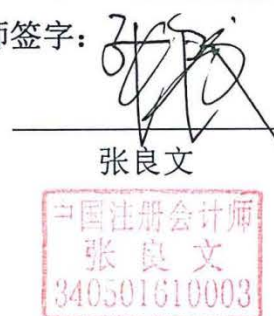 师签字：
张良文
中国注册会计师
张良文
340501610003